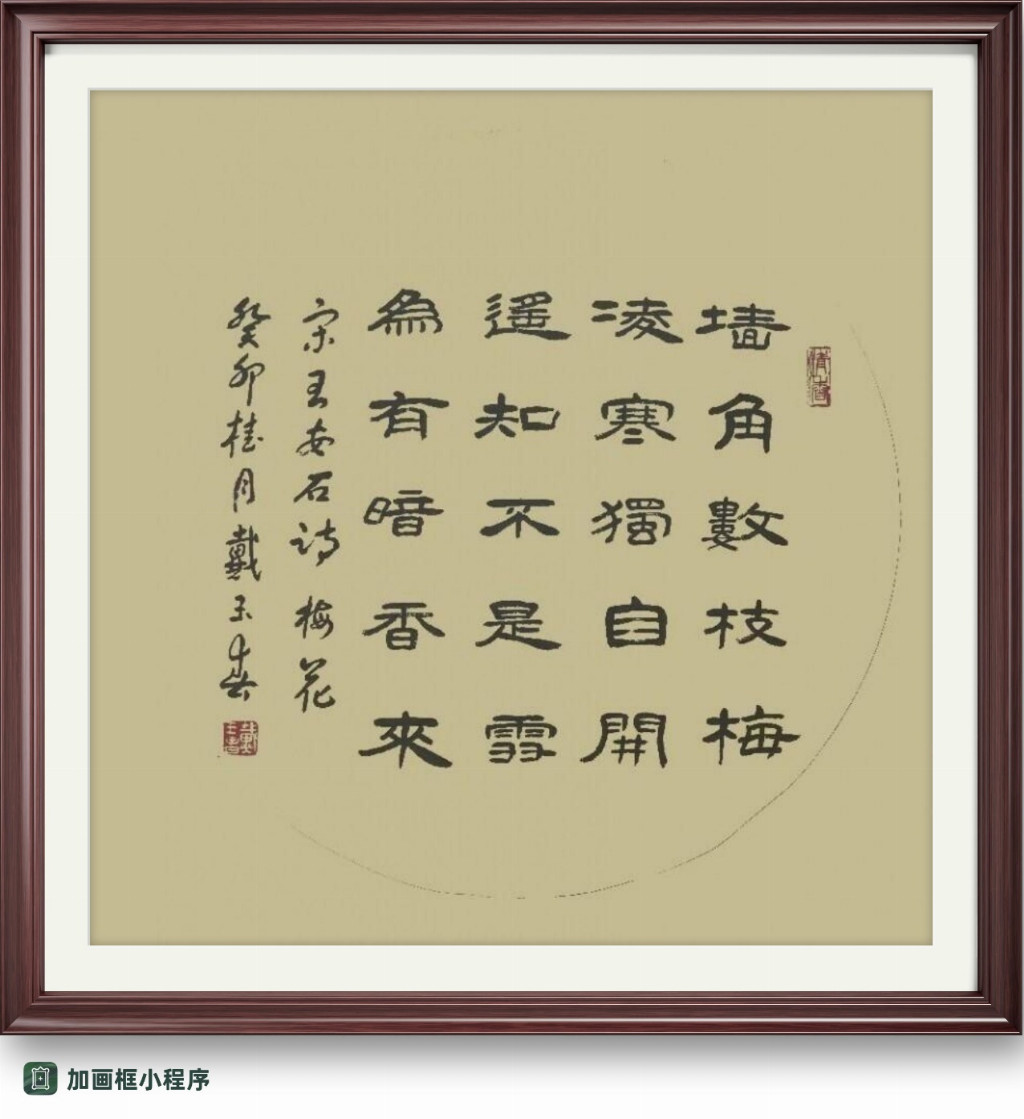 墙角數枝梅
凌寒獨自開
遥知不是雪
為有暗香來
宋王安石詩梅花
癸卯桂月戴玉春
加画框小程序